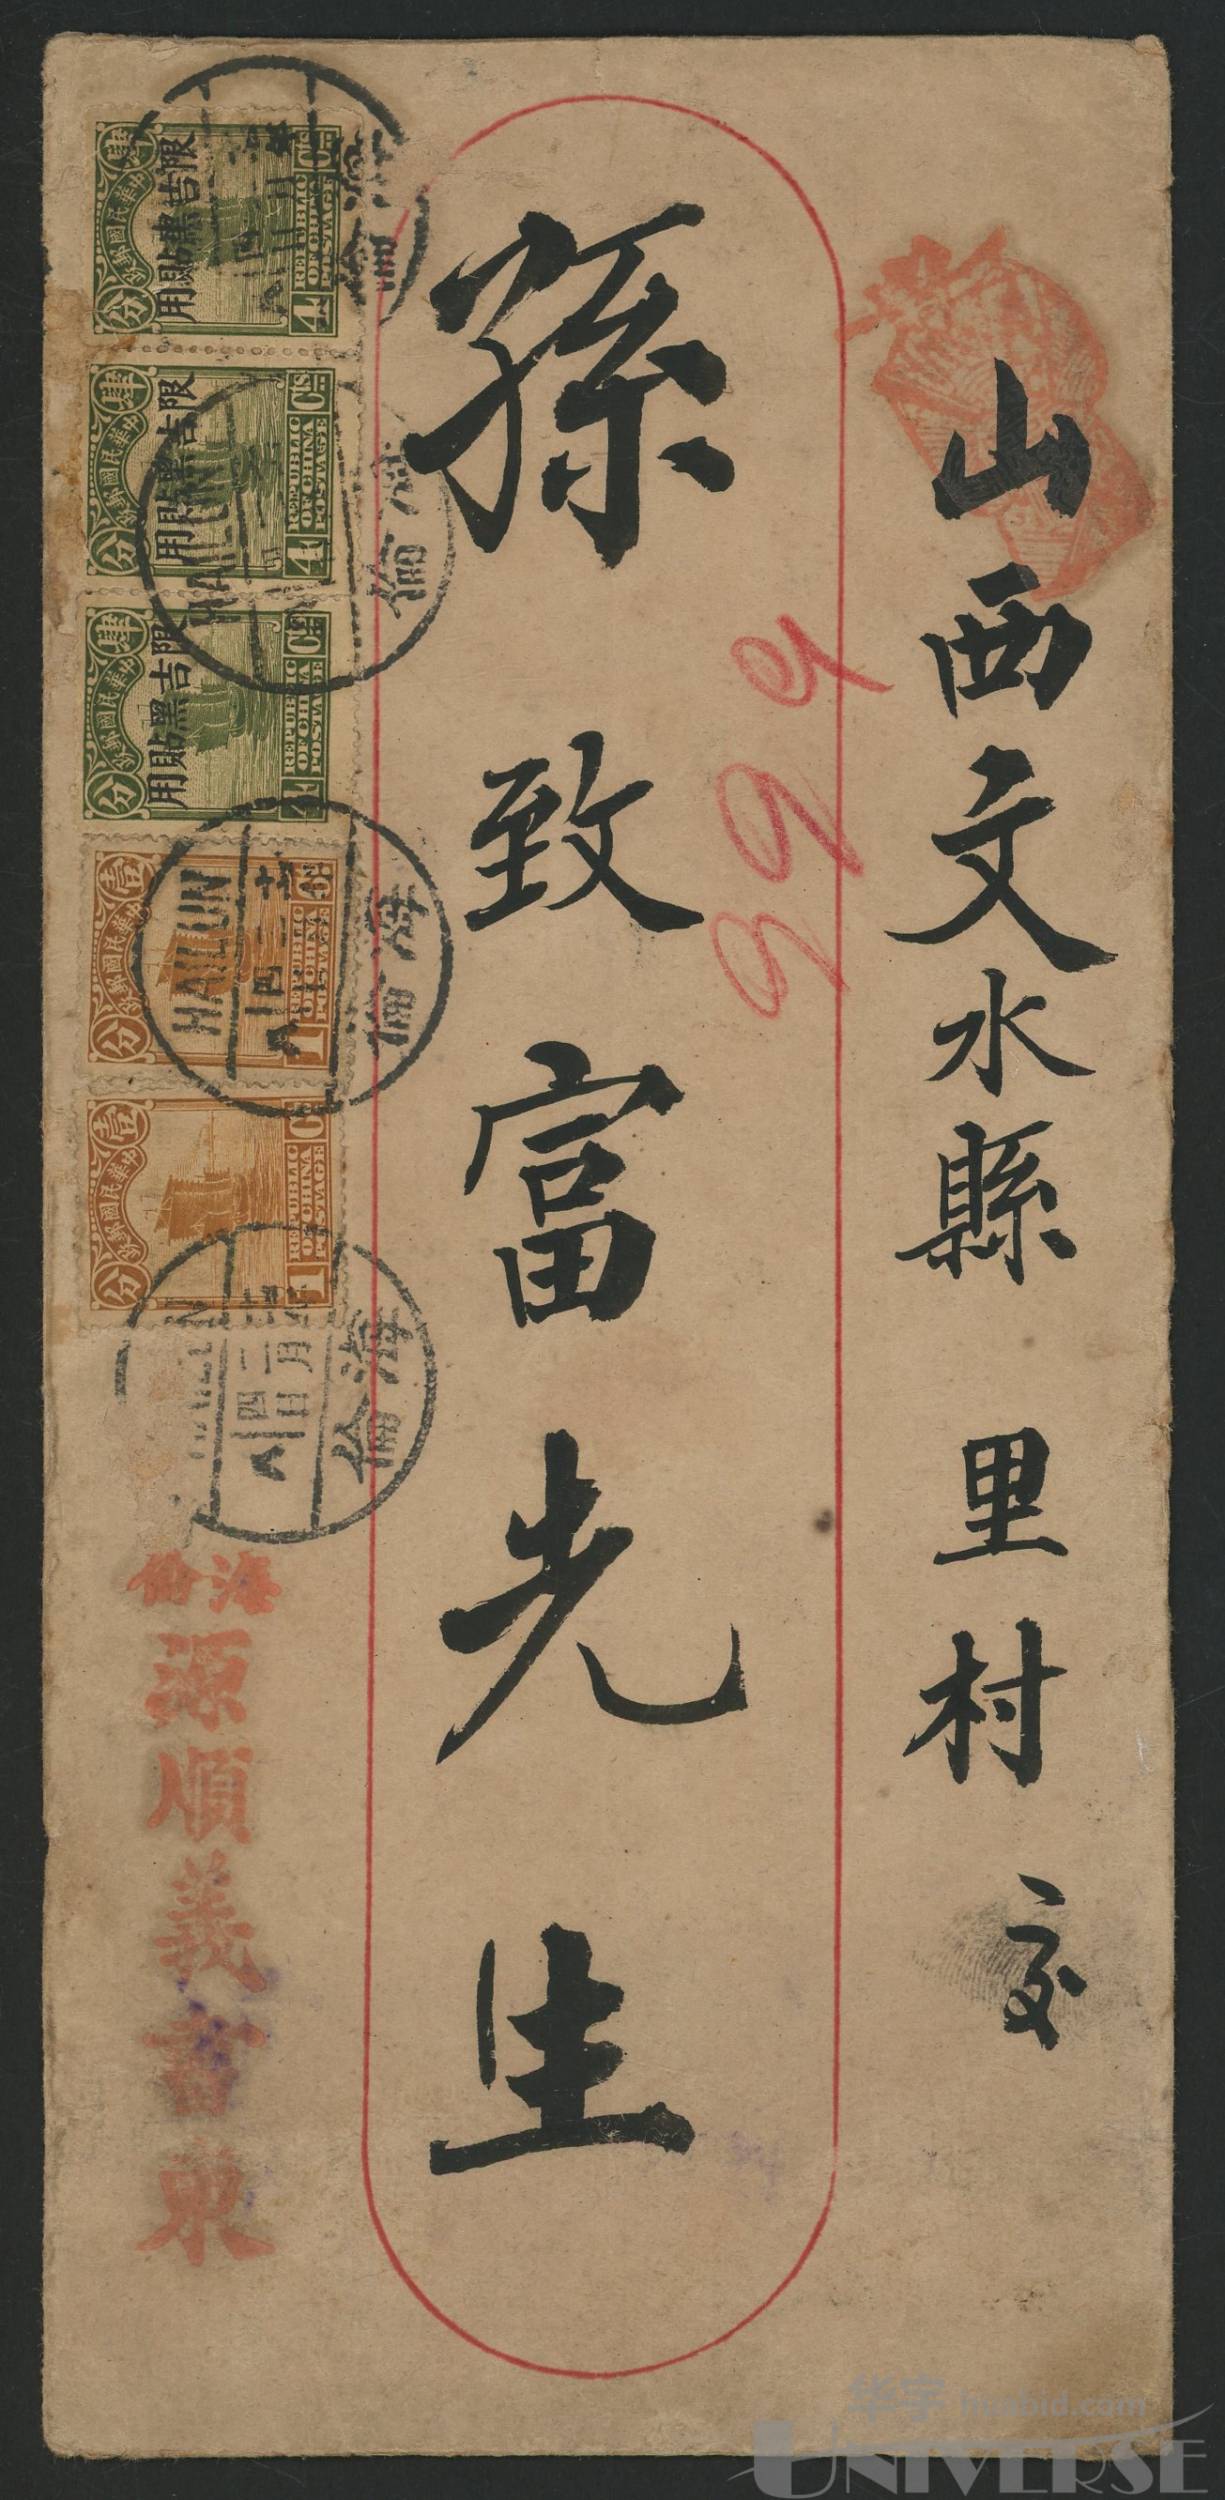 山西文水縣 里村 交
孫致富先生
999
限吉黑貼用
中華民國郵政
肆分
4 CTS
REPUBLIC OF CHINA POSTAGE
限吉黑貼用
中華民國郵政
肆分
4 CTS
REPUBLIC OF CHINA POSTAGE
限吉黑貼用
中華民國郵政
肆分
4 CTS
REPUBLIC OF CHINA POSTAGE
中華民國郵政
壹分
1 CT
REPUBLIC OF CHINA POSTAGE
中華民國郵政
壹分
1 CT
REPUBLIC OF CHINA POSTAGE
海倫
海倫
HAILUN
海倫
HAILUN
海倫
海倫
源順義書柬
华宇 huabid.com
UNIVERSE